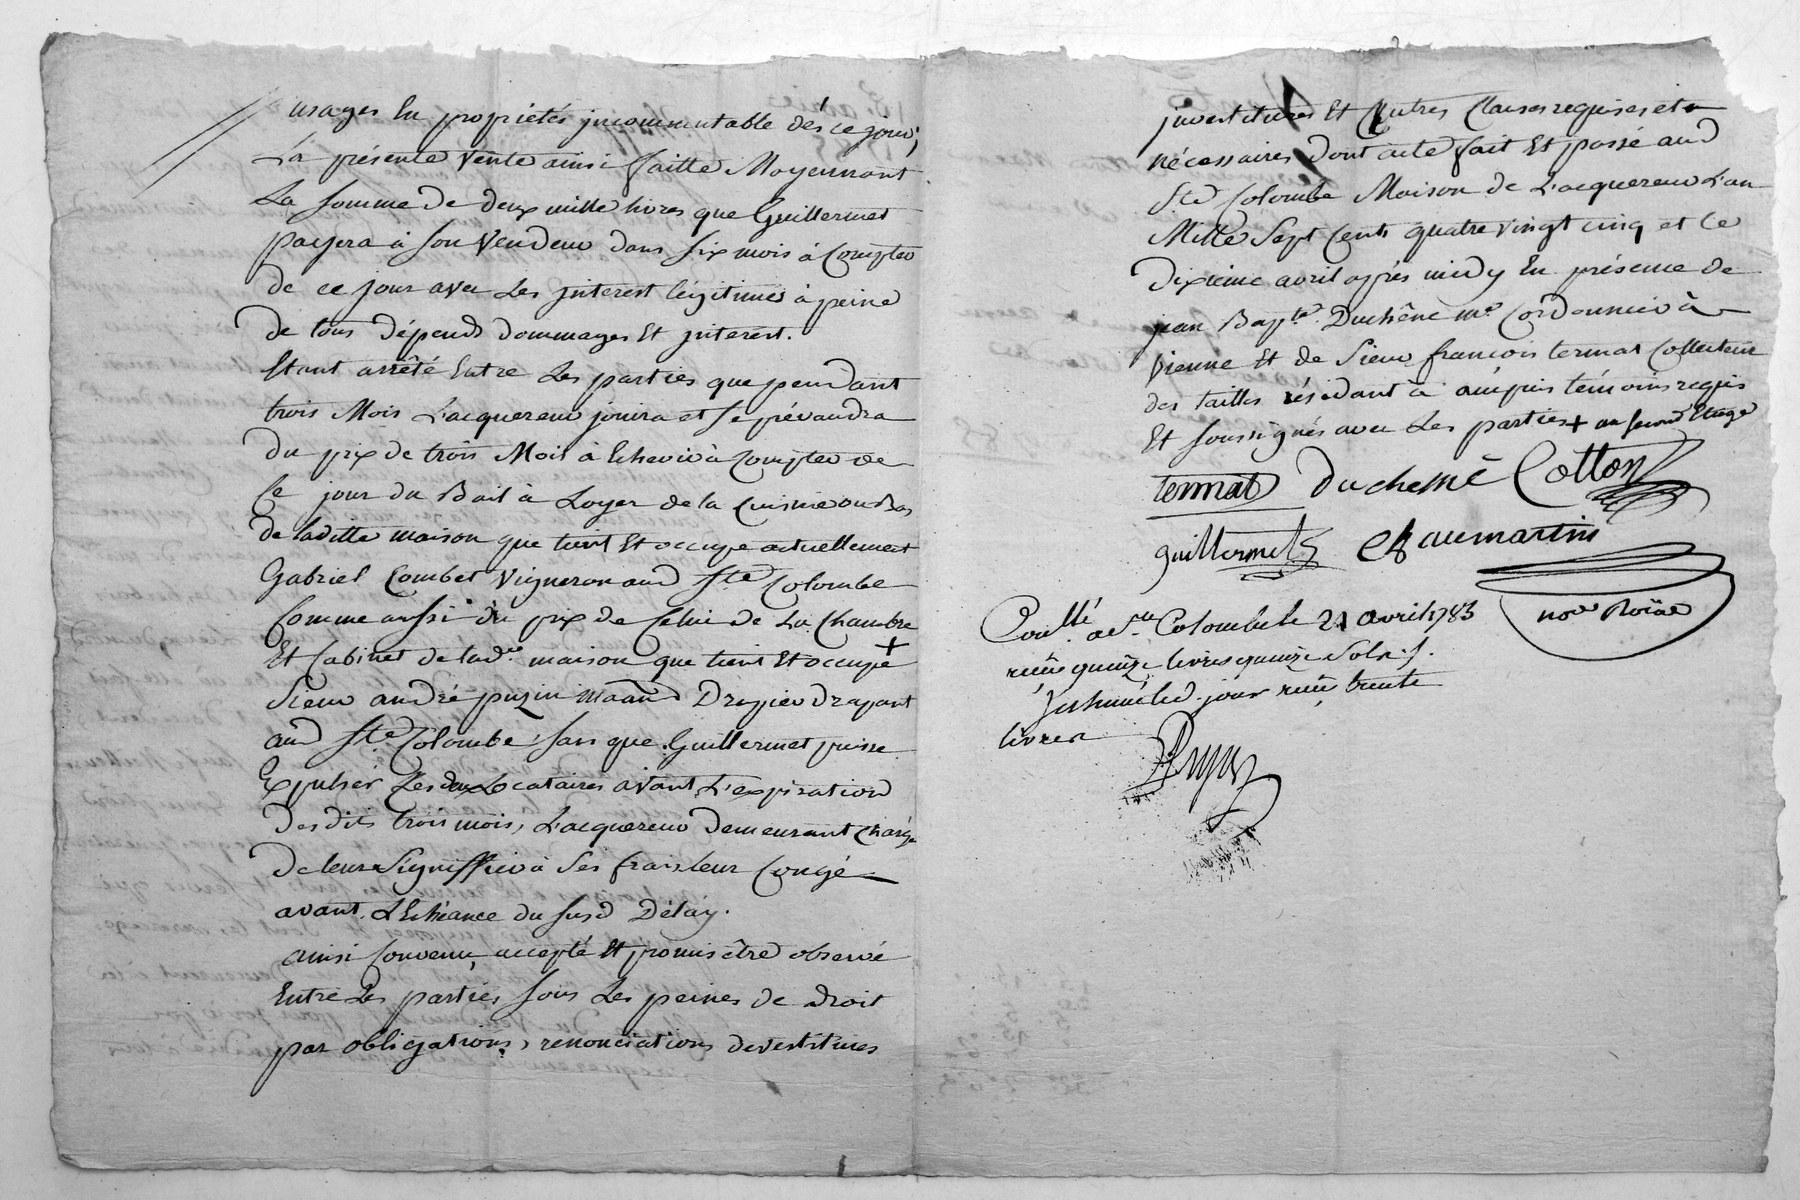 usages En propriétés jncommutable dés ce jour;
La présente Vente ainsi faitte Moyennant
La somme de deux mille livres que Guillermet
payera à son Vendeur dans six mois à Compter
de ce jour avec Les jnterest légitimes à peine
de tous dépends dommages Et jnterest.
Etant arrêté Entre Les parties que pendant
trois Mois L'acquereur jouira et se prévaudra
du prix de trois Mois à Echevir à Compter de
Ce jour du Bail à Loyer de la Cuisine au Bas
de laditte maison que tient Et occupe actuellement
Gabriel Combet Vigneron aud Ste Colombe
Comme aussi du prix de Celui de La Chambre
Et Cabinet de lad.e maison que tient Et occupe +
Sieur andré puzin Marchand Drapier drapant
aud Ste Colombe, sans que Guillermet puisse
Expulser Les deux Locataires avant L'expiration
Desdits trois mois, L'acquereur demeurant Chargé
de leur Signiffier à Ses frais leur Congé
avant L'Echéance du susd Délay.
ainsi Convenu, accepté Et promis être observé
Entre Les parties sous Les peines de droit
par obligations, renonciations devestitures
jnvestitures Et Autres Clauses requises et
nécessaires, dont acte fait Et passé aud
Ste Colombe Maison de L'acquereur L'an
Mille Sept Cents quatre vingt cinq et le
dixieme avril après midy En présence de
jean Bapte. Duchêne me. Cordonnier à
vienne Et de Sieur françois termat Collecteur
des tailles résidant à ampuis témoins requis
Et soussignés avec Les parties + au second Etage
termat Duchesne Cotton
guillermet Chaumartin
nore Roïae
Conllé. a Ste Colombe le 21 avril 1783
reçu quinze livres quinze Sols.
jnsinué led. jour reçu trente
livres